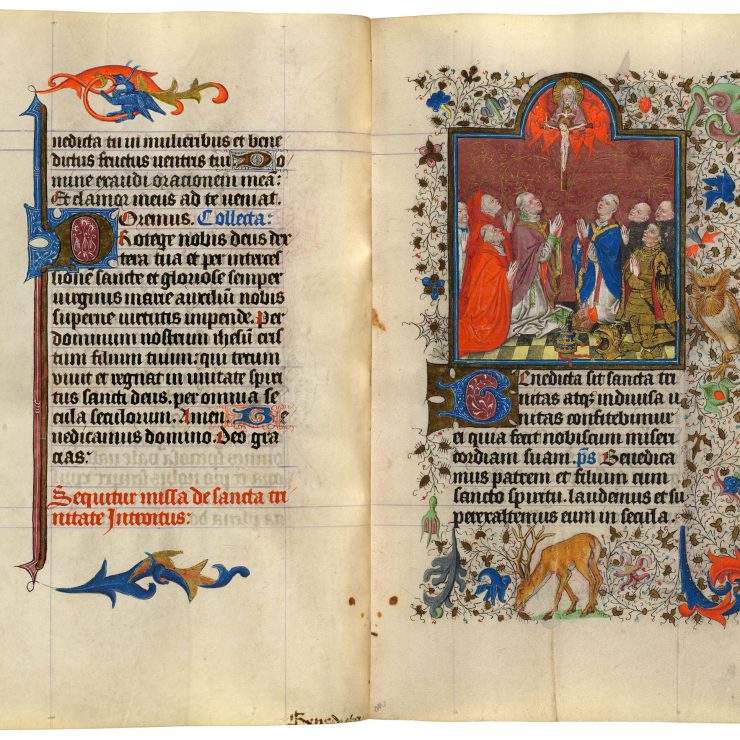 nedicta tu in mulieribus et bene
dictus fructus ventris tui Do
mine exaudi orationem meā:
Et clamor meus ad te veniat.
Oremus. Collecta:
Protege nobis deus dex
tera tua et per interces
sione sancte et gloriose semper
virginis marie auxiliū nobis
superne virtutis impende. Per
dominum nostrum ihesū cris
tum filium tuum: qui tecum
vivit et regnat in unitate spiri
tus sancti deus, per omnia se
cula seculorum. Amen. Be
nedicamus domino. Deo gra
cias:
Sequitur missa de sancta tri
nitate Introitus:
Benedicta sit sancta tri
nitas atqz indivisa u
nitas confitebimur
ei quia fecit nobiscum miseri
cordiam suam. p̄s Benedica
mus patrem et filium cum
sancto spiritu. laudemus et su
perexaltemus eum in secula.